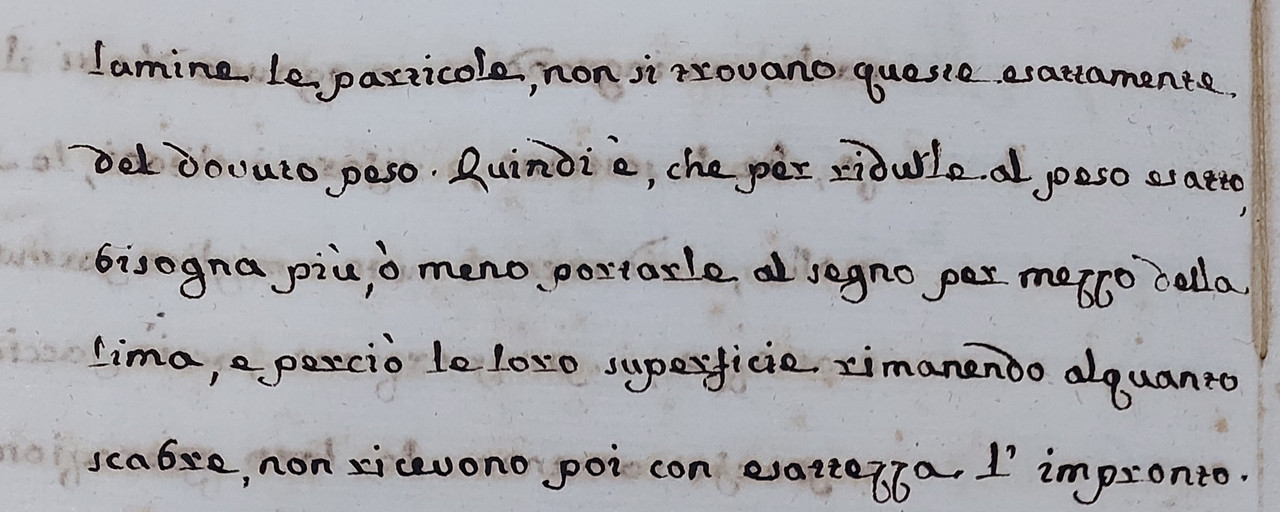 lamine le particole, non si trovano queste esattamente
del dovuto peso. Quindi è, che per ridurle al peso esatto,
bisogna più, ò meno portarle al segno per mezzo della
lima, e perciò le loro superficie rimanendo alquanto
scabre, non ricevono poi con esattezza l' impronto.